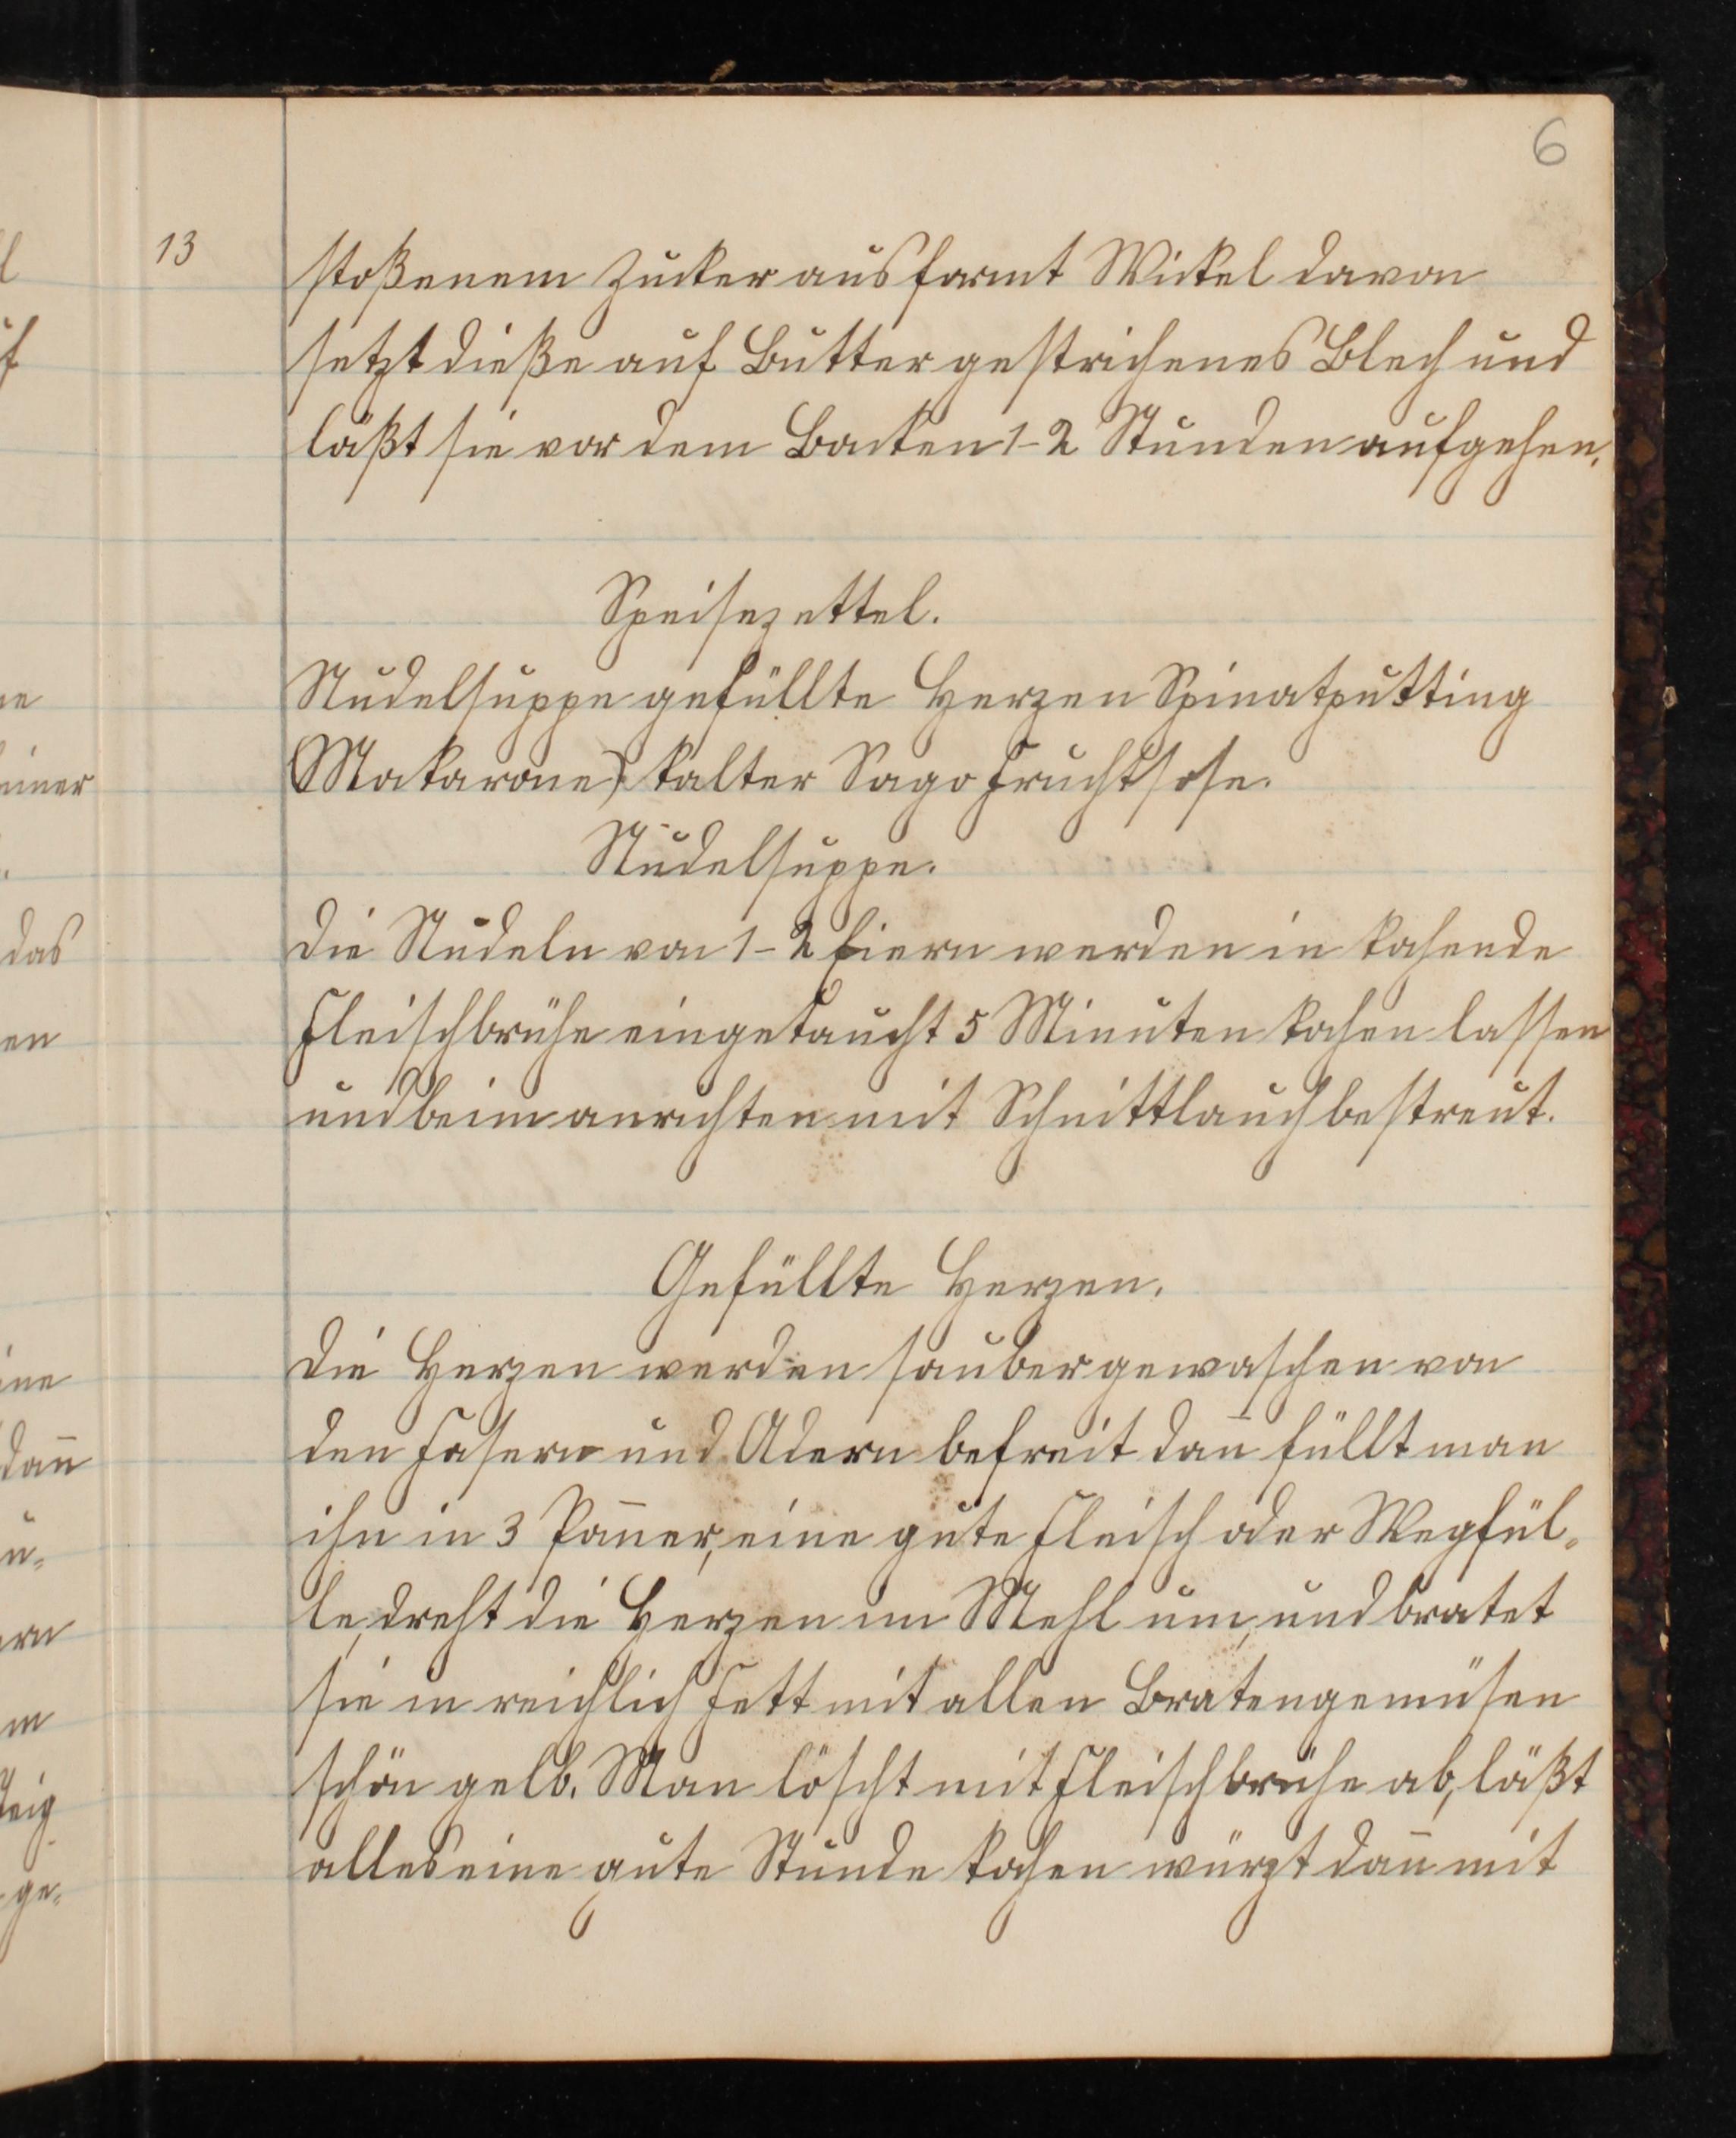 6
13
stoßenem Zucker aus formt Wickel davon
setzt dieße auf Butter gestrichenes Blech und
läßt sie vor dem Backen 1-2 Stunden aufgehen.
Speisezettel.
Nudelsuppe gefüllte Herzen Spinatputting
(Makarone) kalter Sago Fruchtsose.
Nudelsuppe.
Die Nudeln von 1-2 Eiern werden in kochende
Fleischbrühe eingetaucht 5 Minuten kochen lassen
und beim anrichten mit Schnittlauch bestreut.
Gefüllte Herzen.
Die Herzen werden sauber gewaschen von
den Fasern und Adern befreit dann̄ füllt man
ihn in 3 eine gute Fleisch oder Wegfül-
le, dreht die Herzen im Mehl um, und bratet
sie in reichlich Fett mit allen Bratengemüsen
schön gelb. Man löscht mit Fleischbrühe ab, läßt
alles eine gute Stunde kochen würzt dan̄ mit